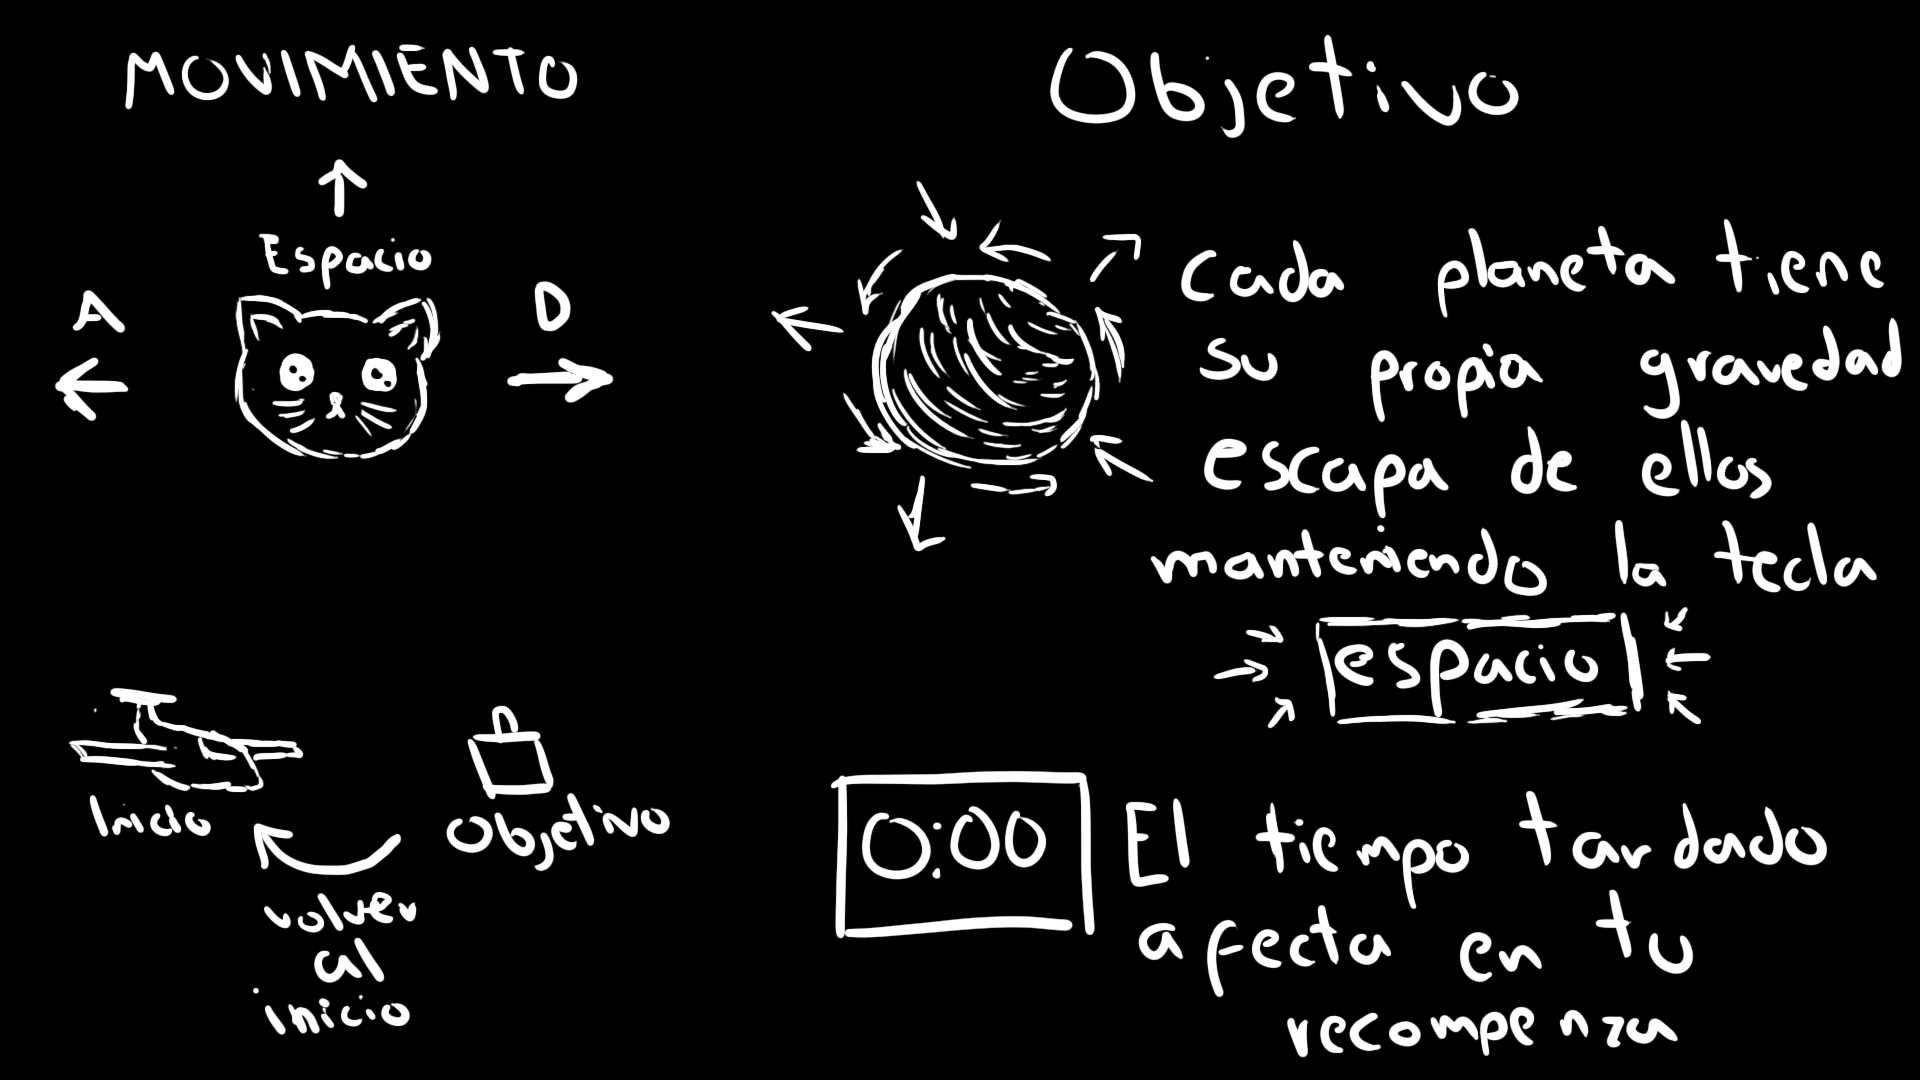 MOVIMIENTO
Espacio
A
D
Inicio
Objetivo
volver
al
inicio
Objetivo
Cada planeta tiene
su propia gravedad
escapa de ellos
manteniendo la tecla
espacio
0:00
El tiempo tardado
afecta en tu
recompenza